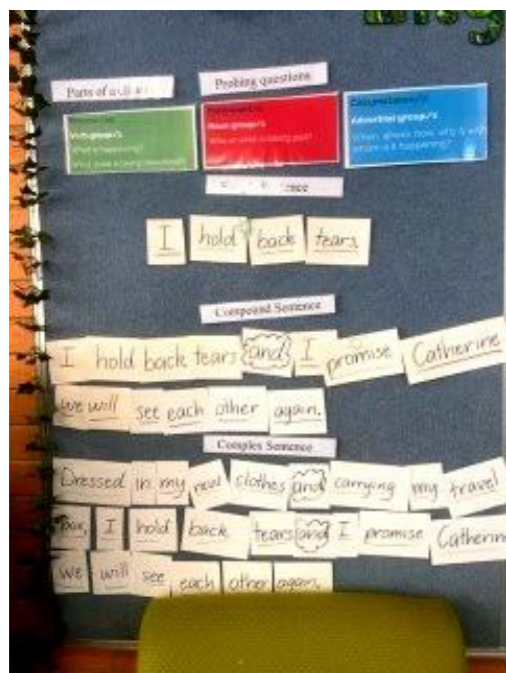 Parts of a
Probing questions
Verb group/s
What's happening?
Noun group/s
Who or what is taking part?
Circumstance/s
Adverbial group/s
When, where, how, why & with
whom is it happening?
I hold back tears.
Compound Sentence
I hold back tears and I promise Catherine
we will see each other again.
Complex Sentence
Dressed in my new clothes and carrying my travel
box, I hold back tears and I promise Catherine
we will see each other again.